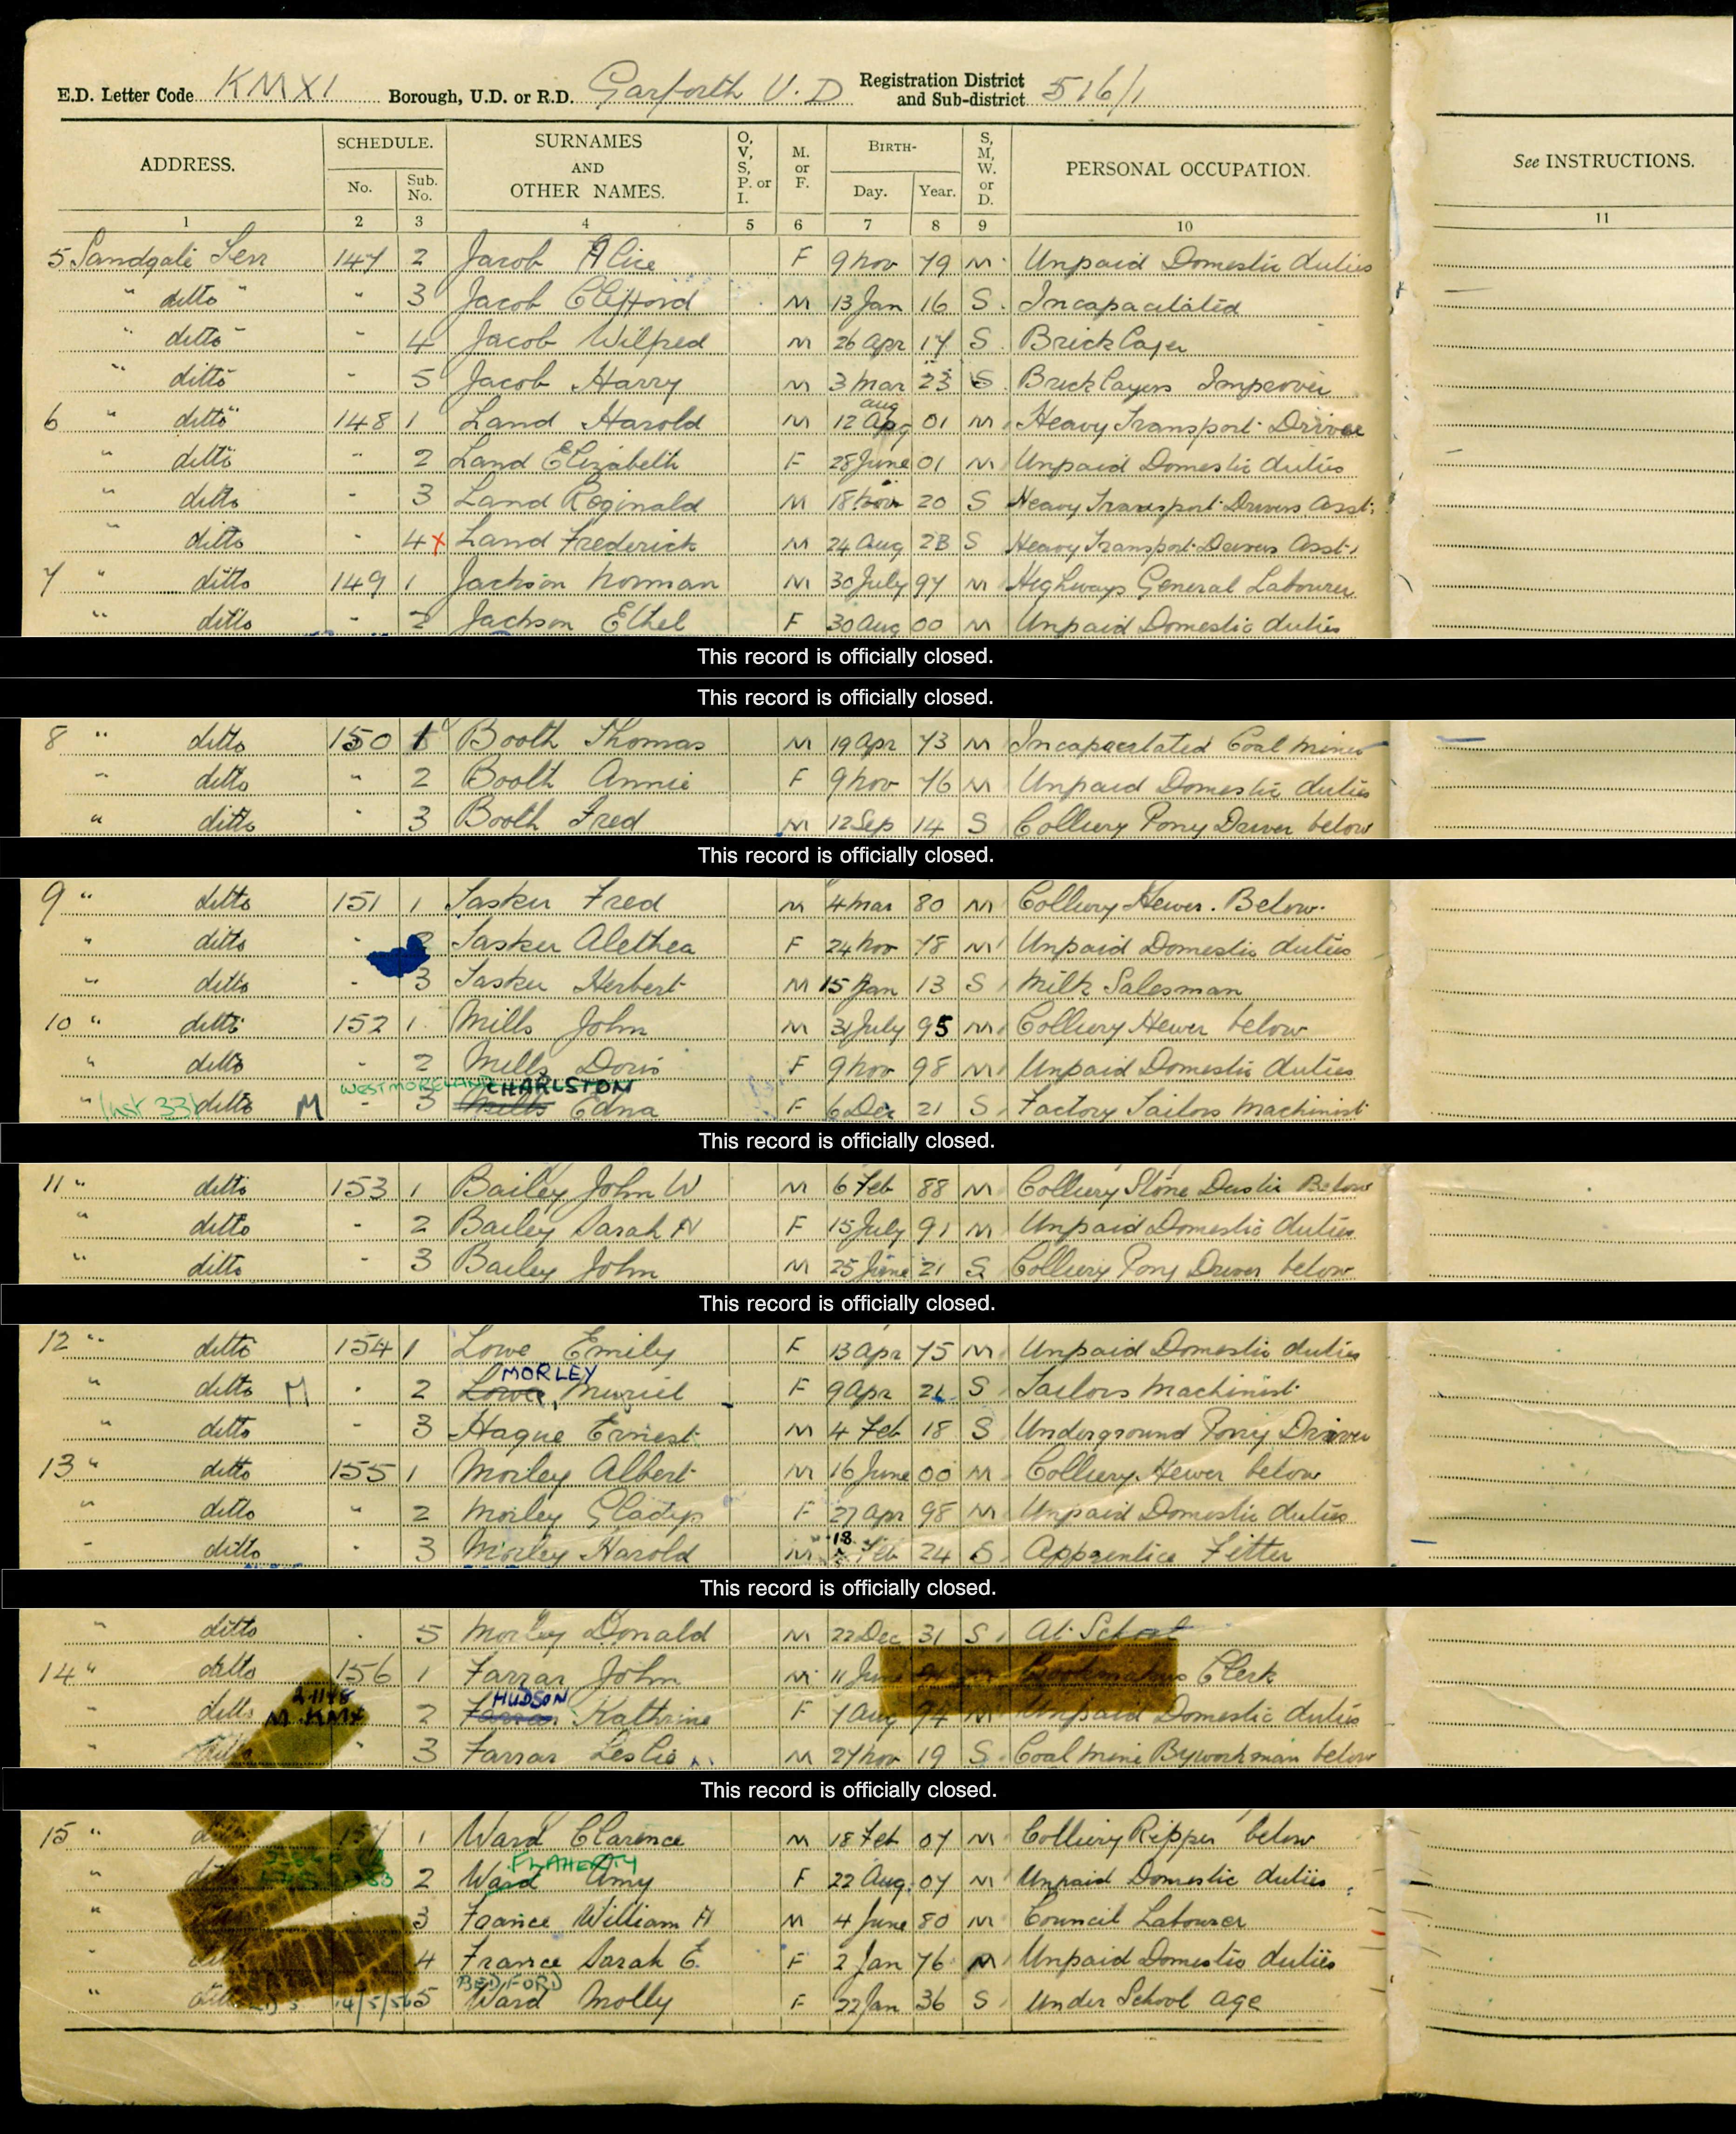 E.D. Letter Code KMX1 Borough, U.D. or R.D. Garforth U.D Registration District and Sub-district 516/1
ADDRESS. SCHEDULE. No. Sub. No. SURNAMES AND OTHER NAMES. O, V, S, P. or I. M. or F. BIRTH- Day. Year. S, M, W. or D. PERSONAL OCCUPATION. See INSTRUCTIONS.
1 2 3 4 5 6 7 8 9 10 11
5 Sandgate Terr 147 2 Jacob Alice F 9 Nov 79 M Unpaid Domestic duties
" ditto " - 3 Jacob Clifford M 13 Jan 16 S Incapacitated
" ditto - 4 Jacob Wilfred M 26 Apr 17 S Bricklayer
" ditto - 5 Jacob Harry M 3 Mar 23 S Bricklayers Improver
6 " ditto 148 1 Land Harold M 12 Aug 01 M Heavy Transport Driver
" ditto - 2 Land Elizabeth F 28 June 01 M Unpaid Domestic duties
" ditto - 3 Land Reginald M 18 Nov 20 S Heavy Transport Drivers Asst.
" ditto - 4 x Land Frederick M 24 Aug 23 S Heavy Transport Drivers Asst.
7 " ditto 149 1 Jackson Norman M 30 July 97 M Highways General Labourer
" ditto - 2 Jackson Ethel F 30 Aug 00 M Unpaid Domestic duties
This record is officially closed.
This record is officially closed.
8 " ditto 150 1 Booth Thomas M 19 Apr 73 M Incapacitated Coal Miner
" ditto " 2 Booth Annie F 9 Nov 76 M Unpaid Domestic duties
" ditto - 3 Booth Fred M 12 Sep 14 S Colliery Pony Driver below
This record is officially closed.
9 " ditto 151 1 Tasker Fred M 4 Mar 80 M Colliery Hewer. Below.
" ditto - 2 Tasker Alethea F 24 Nov 78 M Unpaid Domestic duties
" ditto - 3 Tasker Herbert M 15 Jan 13 S Milk Salesman
10 " ditto 152 1 Mills John M 31 July 95 M Colliery Hewer below
" ditto - 2 Mills Doris F 9 Nov 98 M Unpaid Domestic duties
WESTMORELAND CHARLSTON
" ditto M - 3 Mills Edna F 6 Dec 21 S Factory Tailors Machinist
This record is officially closed.
11 " ditto 153 1 Bailey John W M 6 Feb 88 M Colliery Stone Duster Below
" ditto - 2 Bailey Sarah A F 15 July 91 M Unpaid Domestic duties
" ditto - 3 Bailey John M 25 June 21 S Colliery Pony Driver below
This record is officially closed.
12 " ditto 154 1 Lowe Emily F 13 Apr 75 M Unpaid Domestic duties
MORLEY
" ditto M - 2 Lowe, Muriel F 9 Apr 21 S Tailors Machinist
" ditto - 3 Hague Ernest M 4 Feb 18 S Underground Pony Driver
13 " ditto 155 1 Morley Albert M 16 June 00 M Colliery Hewer below
" ditto " 2 Morley Gladys F 27 Apr 98 M Unpaid Domestic duties
- ditto - 3 Morley Harold M 18 Feb 24 S Apprentice Fitter
This record is officially closed.
" ditto - 5 Morley Donald M 22 Dec 31 S At School
14 " ditto 156 1 Farrar John M 11 June M Bookmakers Clerk
HUDSON
" ditto M KMX 2 Farrar Kathrine F 7 Aug 94 M Unpaid Domestic duties
" ditto " 3 Farrar Leslie M 27 Nov 19 S Coal Mine Byworkman below
This record is officially closed.
15 " 157 1 Ward Clarence M 18 Feb 07 M Colliery Ripper below
FLAHERTY
" 2 Ward Amy F 22 Aug 07 M Unpaid Domestic duties
" 3 France William H M 4 June 80 M Council Labourer
" 4 France Sarah E. F 2 Jan 76 M Unpaid Domestic duties
BEDFORD
" 14/5/56 5 Ward Molly F 22 Jan 36 S Under School age